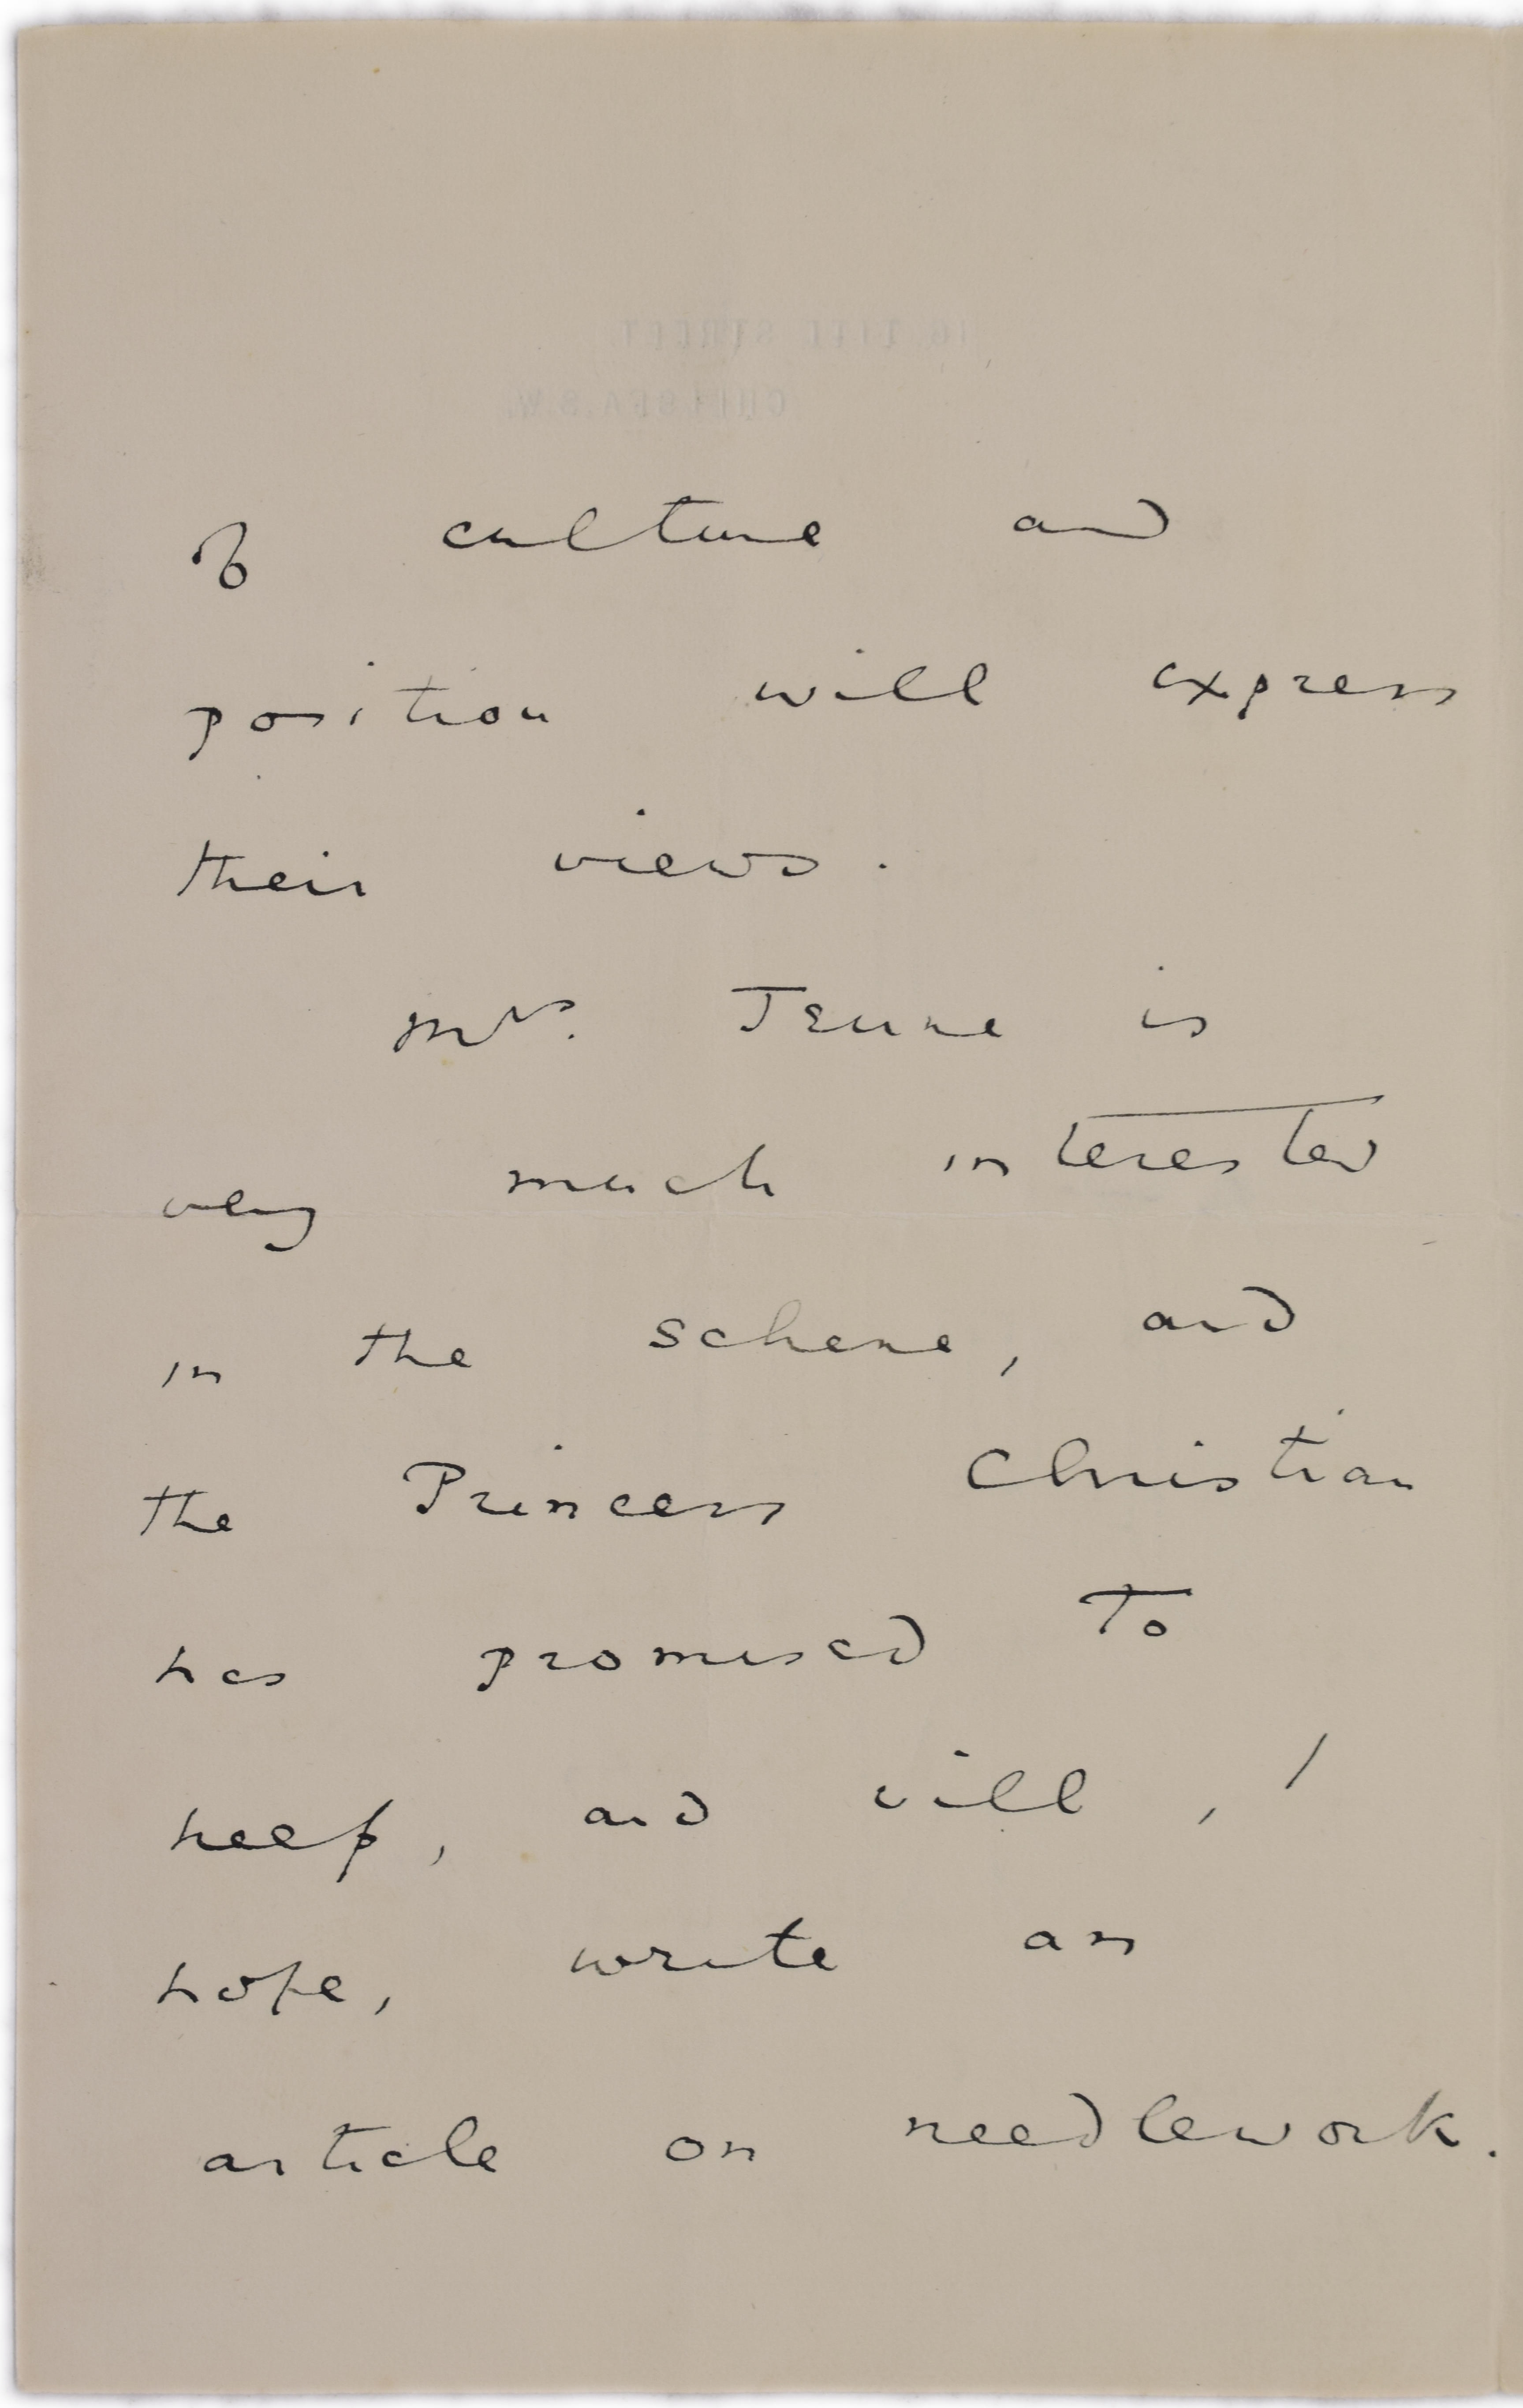 16, TITE STREET,
CHELSEA. S.W.
of culture and
position will express
their views.
Mrs. Jeune is
very much interested
in the scheme, and
the Princess Christian
has promised to
help, and will, I
hope, write an
article on needlework.